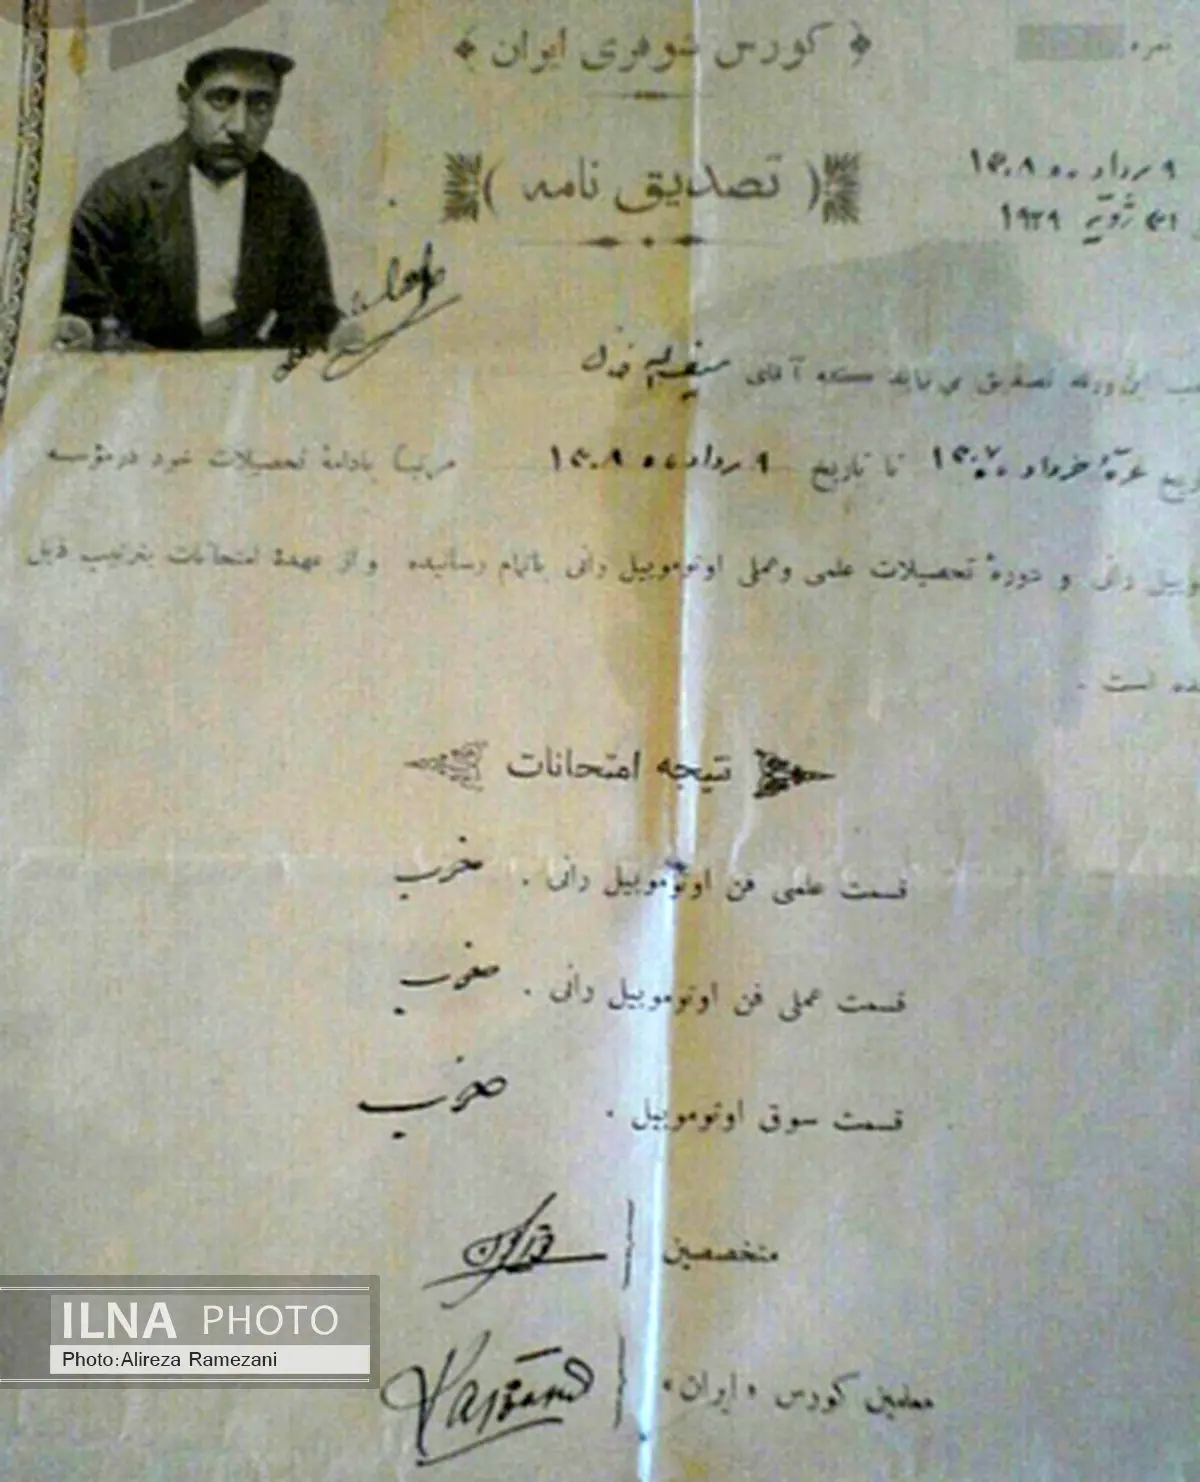 نمره
﴿ کورس شوفری ایران ﴾
( تصدیق نامه )
۹ مرداد ماه ۱۳۰۸
۳۱ ژویه ۱۹۲۹
این ورقه تصدیق می نماید که آقای
خرداد ۱۳۰۷ تا تاریخ ۹ مرداد ماه ۱۳۰۸ مرتباً بادامهٔ تحصیلات خود در مؤسسه
رانی و دورهٔ تحصیلات علمی و عملی اوتوموبیل رانی باتمام رسانیده و از عهدهٔ امتحانات بترتیب ذیل
است .
نتیجه امتحانات
قسمت علمی فن اوتوموبیل رانی . خوب
قسمت عملی فن اوتوموبیل رانی . خوب
قسمت سوق اوتوموبیل . خوب
متخصصین
معلمین کورس «ایران»
ILNA PHOTO
Photo:Alireza Ramezani